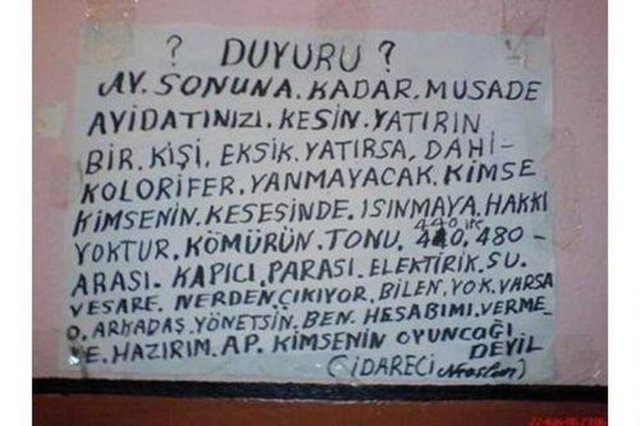 ? DUYURU ?
AY. SONUNA. KADAR. MUSADE
AYIDATINIZI. KESİN. YATIRIN
BİR. KİŞİ. EKSİK. YATIRSA, DAHİ-
KOLORİFER, YANMAYACAK. KİMSE
KİMSENİN. KESESİNDE. ISINMAYA. HAKKI
YOKTUR. KÖMÜRÜN. TONU. 440 480-
ARASI. KAPICI. PARASI. ELEKTİRİK. SU.
VESARE. NERDEN. ÇIKIYOR. BİLEN. YOK. VARSA
O. ARKADAŞ. YÖNETSİN. BEN. HESABIMI. VERME_
E. HAZIRIM. AP. KİMSENİN OYUNCAĞI
DEYİL
(İDARECİ